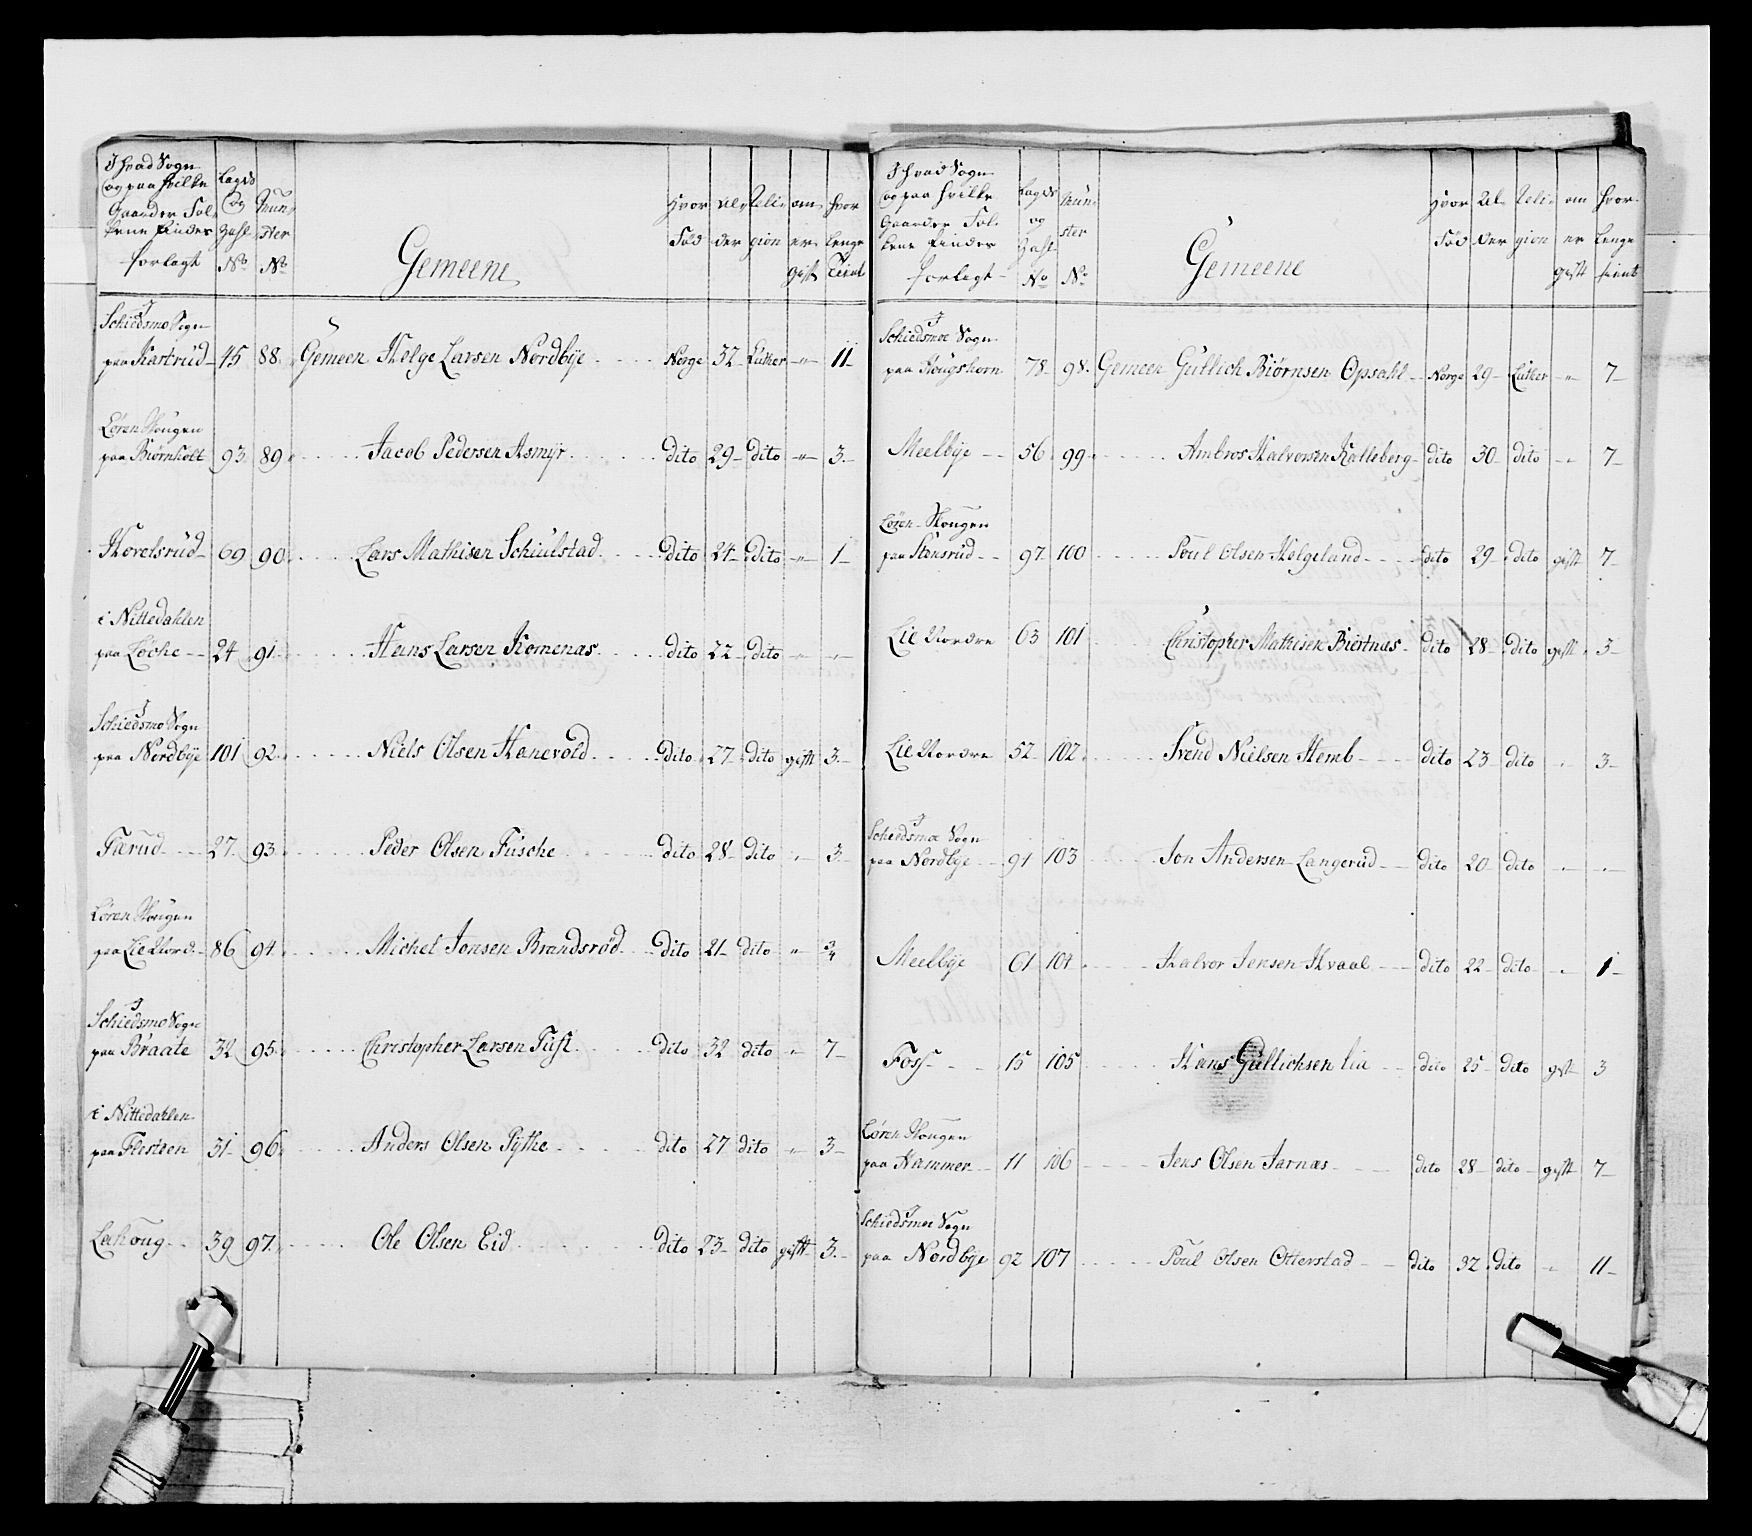 I hvad Sogn
og paa hvilke
Gaarder Fol-
kene findes
forlagt
Lægds
og
Zahl
No
Mun-
ster
No
Gemeene
Hvor
Fød
Al-
der
Reli-
gion
om
er
gift
hvor
lenge
tient
I
Schiedsmo Sogn
paa Kastrud 45 88 Gemeen Helge Larsen Nordbÿe Norge 32 Luther " 11
Løren Skougen
paa Biørnholt 93 89 Jacob Pedersen Asmÿr dito 29 dito " 3
Hovelsrud 69 90 Lars Mathisen Schiulstad dito 24 dito " 1
i Nittedahlen
paa Løche 24 91 Hans Larsen Homenæs dito 22 dito " "
I
Schiedsmo Sogn
paa Nordbÿe 101 92 Niels Olsen Hanevold dito 27 dito gift 3
Farud 27 93 Peder Olsen Fische dito 28 dito " 3
Løren Skougen
paa Lie Nord 86 94 Michel Jonsen Brandsrød dito 21 dito " 3/4
I
Schiedsmo Sogn
paa Braate 32 95 Christopher Larsen Tust dito 32 dito " 7
i Nittedahlen
paa Flesteen 31 96 Anders Olsen Pÿthe dito 27 dito " 3
Lahoug 39 97 Ole Olsen Eid dito 23 dito gift 3
I hvad Sogn
og paa hvilke
Gaarder Fol-
kene findes
forlagt
Lægds
og
Zahl
No
Mun-
ster
No
Gemeene
Hvor
Fød
Al-
der
Reli-
gion
om
er
gift
hvor-
lenge
tient
I
Schiedsmoe Sogn
paa Hougshorn 78 98 Gemeen Gutlich Biørnsen Opsahl Norge 29 Luther " 7
Meelbÿe 56 99 Ambros Halvorsen Kalleberg dito 30 dito " 7
Løren Skougen
paa Stensrud 97 100 Poul Olsen Helgeland dito 29 dito gift 7
Lie Nordre 63 101 Christopher Mathisen Biertnæs dito 28 dito gift 3
Lie Nordre 52 102 Svend Nielsen Hemb dito 23 dito " 3
I
Schiedsmoe Sogn
paa Nordbye 91 103 Jon Andersen Langerud dito 20 dito " "
Meelbÿe 61 104 Halvor Jensen Hvaal dito 22 dito " 1
Foss 15 105 Hans Gullichsen Lia dito 25 dito gift 3
Løren Skougen
paa Hammer 11 106 Jens Olsen Jarnæs dito 28 dito gift 7
I
Schiedsmoe Sogn
paa Nordbye 92 107 Poul Olsen Otterstad dito 32 dito " 11